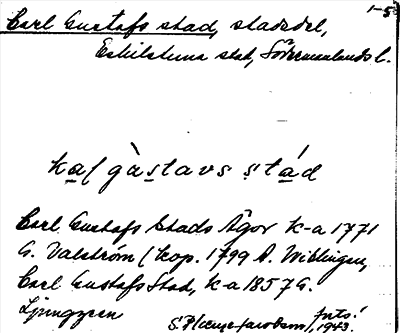 1-5
Carl Gustafs stad, stadsdel,
Eskilstuna stad, Södermanlands l.
ka̱l gàstavs stád
Carl Gustafs Stads Ägor k-a 1771
G. Valström (kop. 1799 A. Wiblingen,
Carl Gustafs Stad, k-a 1857 G.
Ljunggren
1943.